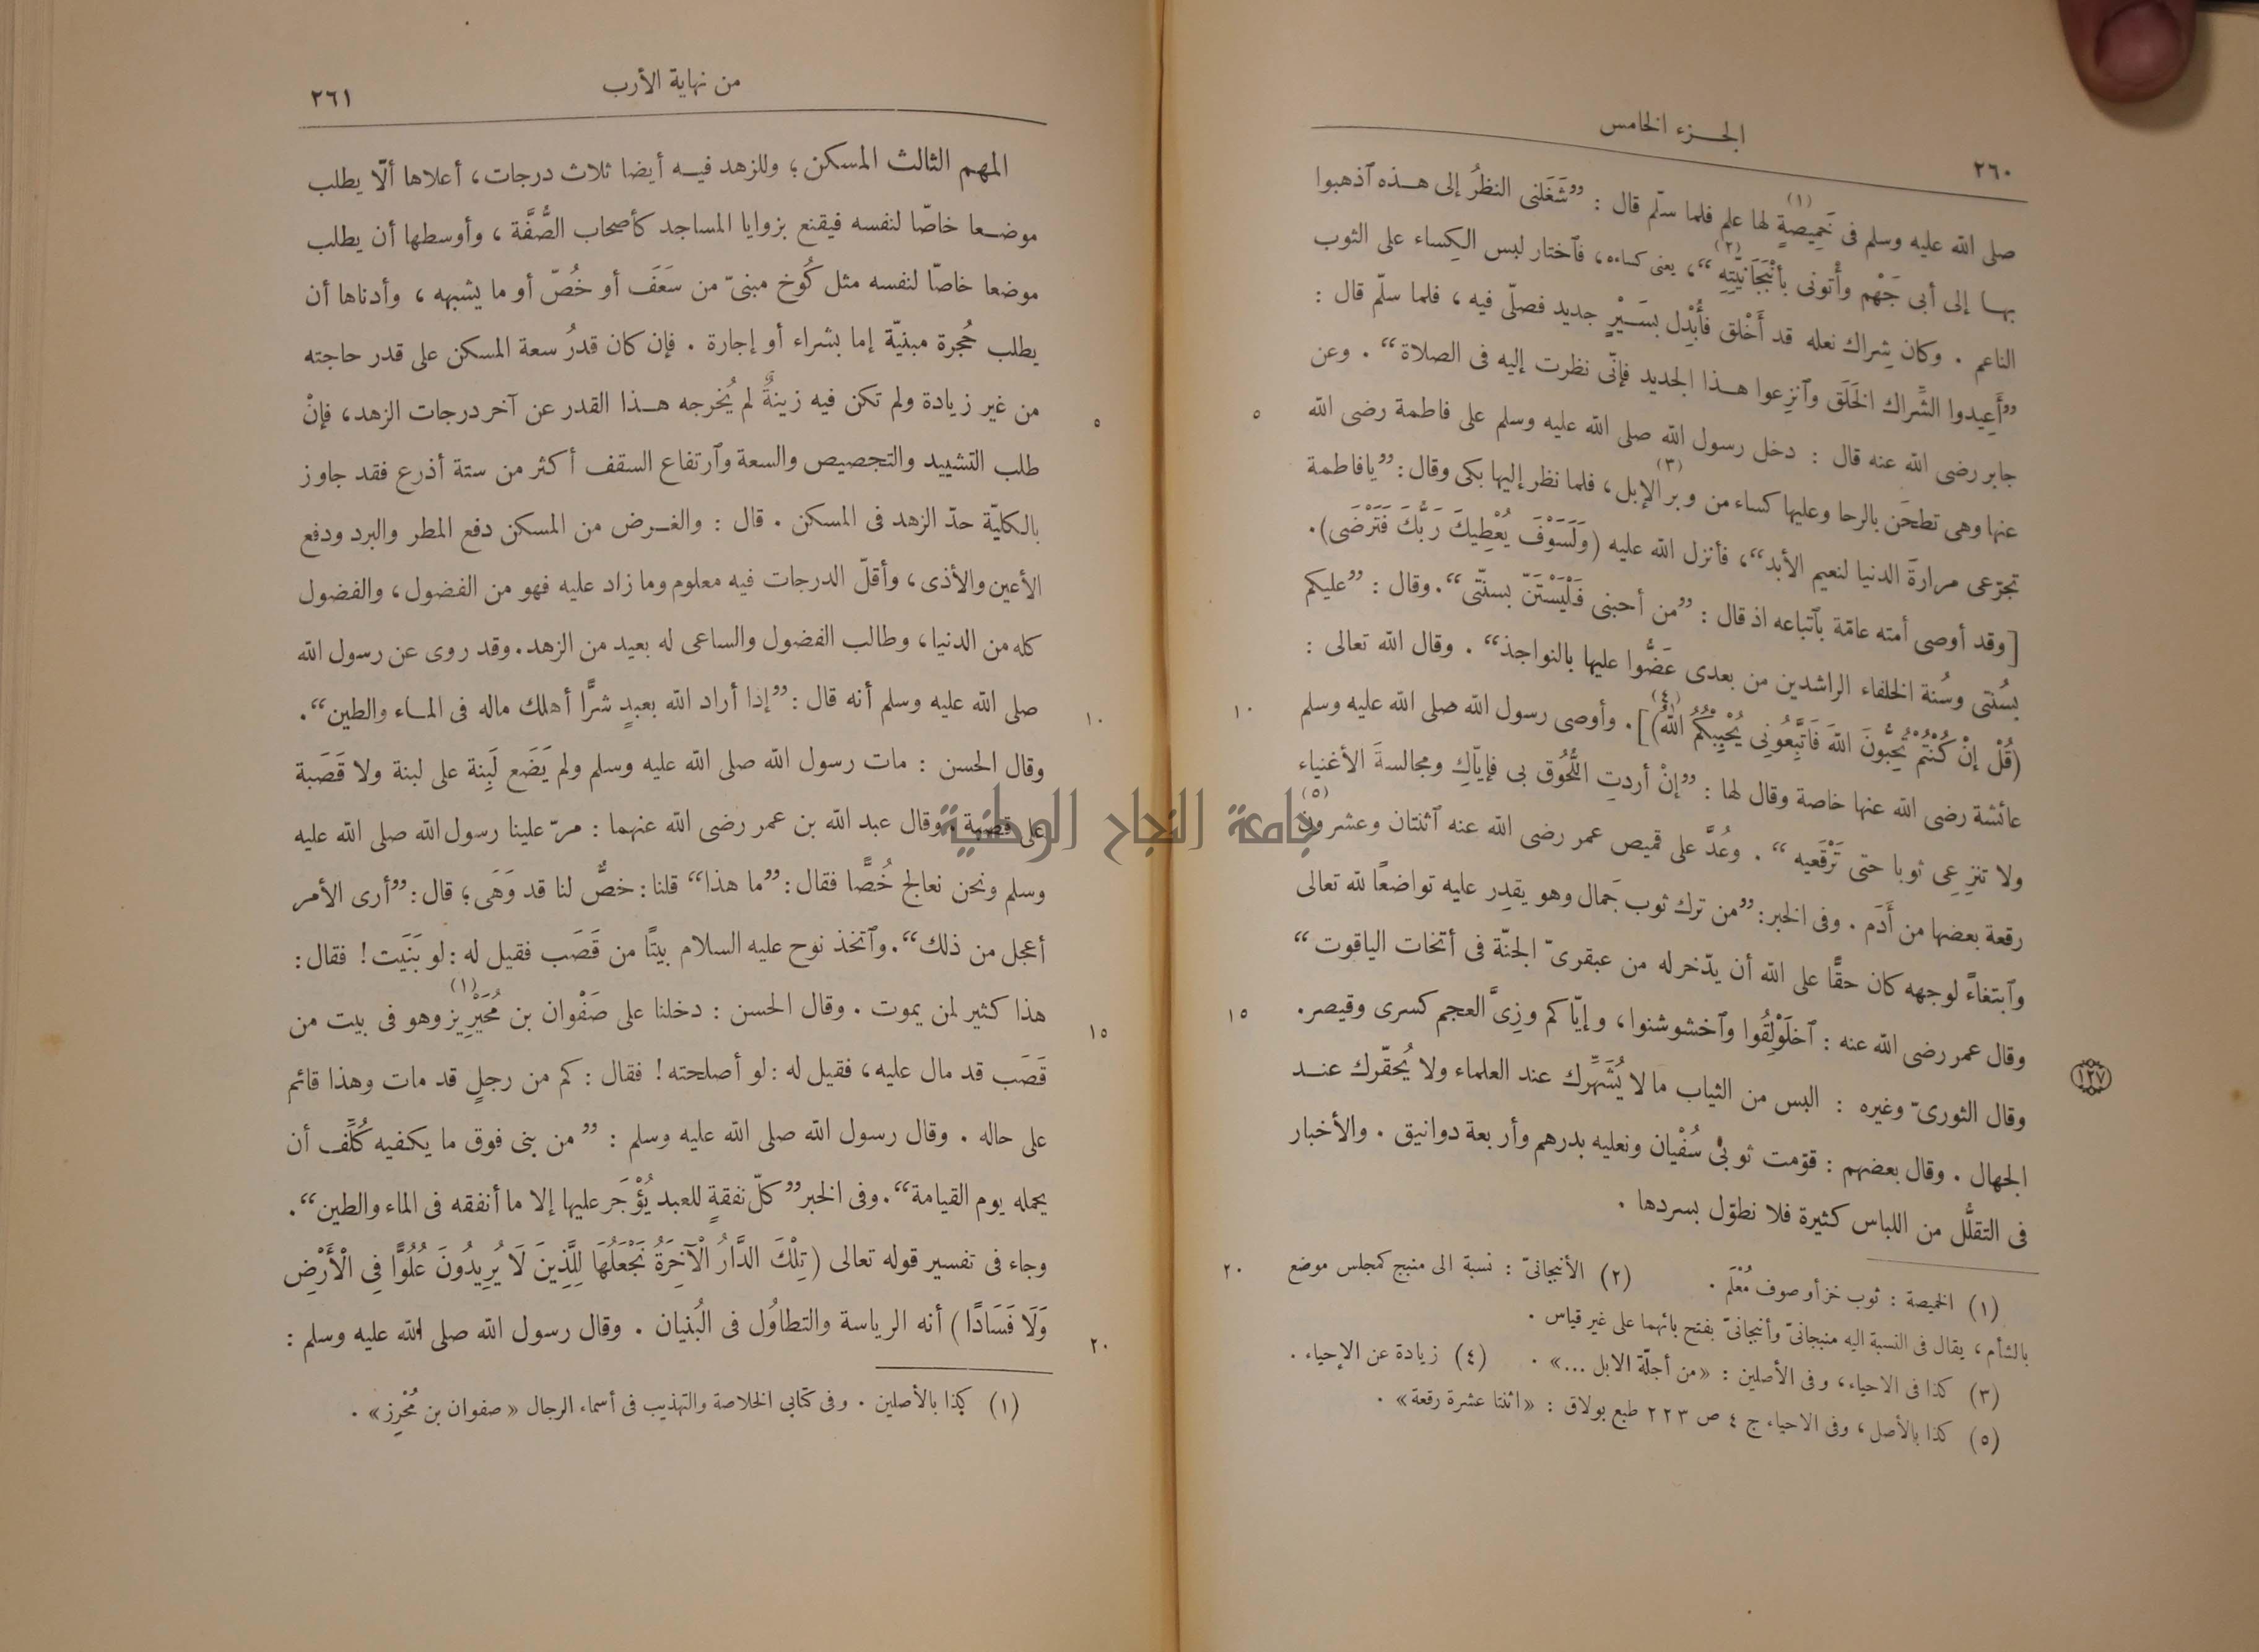 الجـزء الخامس
٢٦٠
صلى الله عليه وسلم فى خَمِيصةٍ (١) لها علم فلما سلّم قال : ”شَغَلَنى النظرُ إلى هـذه ٱذهبوا
بهـا إلى أبى جَهْم وأْتونى بأَنْبَجَانيَّتِهِ (٢)“، يعنى كساءه، فٱختار لبس الكِساء على الثوب
الناعم . وكان شِراك نعله قد أَخْلق فأُبْدِل بسَـيْرٍ جديد فصلّى فيه ، فلما سلّم قال :
”أَعِيدوا الشِّراك الخَلَق وٱنزِعوا هـذا الجديد فإنّى نظرت إليه فى الصلاة“ . وعن
٥
جابر رضى الله عنه قال : دخل رسول الله صلى الله عليه وسلم على فاطمة رضى الله
عنها وهى تطحَن بالرحا وعليها كساء من وبر الإبل (٣)، فلما نظر إليها بكى وقال: ”يا فاطمة
تجرّعى مرارةَ الدنيا لنعيم الأبد“، فأنزل الله عليه (وَلَسَوْفَ يُعْطِيكَ رَبُّكَ فَتَرْضَى).
[وقد أوصى أمته عامّة بٱتباعه اذ قال : ”من أحبنى فَلْيَسْتَنّ بسنّتى“. وقال : ”عليكم
بسُنتى وسُنة الخلفاء الراشدين من بعدى عَضُّوا عليها بالنواجذ“ . وقال الله تعالى :
(قُلْ إنْ كُنْتُمْ تُحِبُّونَ اللهَ فَاتَّبِعُونِى يُحْبِبْكُمُ اللهُ)] (٤). وأوصى رسول الله صلى الله عليه وسلم
١٠
عائشة رضى الله عنها خاصة وقال لها : ”إنْ أردتِ اللُّحُوق بى فإيّاكِ ومجالسةَ الأغنياء
ولا تنزِعِى ثوبا حتى تَرْقَعيه “ . وعُدَّ على قميص عمر رضى الله عنه ٱثنتان وعشرون (٥)
رقعة بعضها من أَدَم . وفى الخبر: ”من ترك ثوب جَمال وهو يقدِر عليه تواضعًا لله تعالى
وٱبتغاءً لوجهه كان حقًّا على الله أن يدّخر له من عبقرىّ الجنّة فى أتخات الياقوت “
وقال عمر رضى الله عنه : ٱخلَوْلِقُوا وٱخشوشنوا، وإيّاكم وزِىَّ العجم كسرى وقيصر.
١٥
١٢٧
وقال الثورىّ وغيره : البس من الثياب ما لا يُشَهِّرك عند العلماء ولا يُحقّرك عنـد
الجهال . وقال بعضهم : قوّمت ثوبَىْ سُفْيان ونعليه بدرهم وأربعة دوانيق . والأخبار
فى التقلُّل من اللباس كثيرة فلا نطوّل بسردها .
(١) الخميصة : ثوب خز أو صوف مُعْلَم . (٢) الأنبجانىّ : نسبة الى منبج كمجلس موضع
٢٠
بالشأم ، يقال فى النسبة اليه منبجانىّ وأنبجانىّ بفتح بائهما على غير قياس .
(٣) كذا فى الاحياء، وفى الأصلين : «من أجلّة الابل ...» . (٤) زيادة عن الإحياء .
(٥) كذا بالأصل ، وفى الاحياء ج ٤ ص ٢٢٣ طبع بولاق : «اثنتا عشرة رقعة» .
من نهاية الأرب
٢٦١
المهم الثالث المسكن ؛ وللزهد فيـه أيضا ثلاث درجات، أعلاها ألّا يطلب
موضـعا خاصّا لنفسه فيقنع بزوايا المساجد كأصحاب الصُّفَّة ، وأوسطها أن يطلب
موضعا خاصّا لنفسه مثل كُوخ مبنىّ من سَعَفَ أو خُصّ أو ما يشبهه ، وأدناها أن
يطلب حُجرة مبنيّة إما بشراء أو إجارة . فإن كان قدرُ سعة المسكن على قدر حاجته
من غير زيادة ولم تكن فيه زينةٌ لم يُخرجه هـذا القدر عن آخر درجات الزهد، فإنْ
٥
طلب التشييد والتجصيص والسعة وٱرتفاع السقف أكثر من ستة أذرع فقد جاوز
بالكليّة حدّ الزهد فى المسكن . قال : والغـرض من المسكن دفع المطر والبرد ودفع
الأعين والأذى، وأقلّ الدرجات فيه معلوم وما زاد عليه فهو من الفضول، والفضول
كله من الدنيا، وطالب الفضول والساعى له بعيد من الزهد. وقد روى عن رسول الله
صلى الله عليه وسلم أنه قال : ”إذا أراد الله بعبدٍ شرًّا أهلك ماله فى المـاء والطين“.
١٠
وقال الحسن : مات رسول الله صلى الله عليه وسلم ولم يَضَع لَبِنة على لبنة ولا قَصَبة
على قصبة . وقال عبد الله بن عمر رضى الله عنهما : مرّ علينا رسول الله صلى الله عليه
جامعة النجاح الوطنية
وسلم ونحن نعالج خُصًّا فقال: ”ما هذا“ قلنا: خصٌّ لنا قد وَهَى؛ قال: ”أرى الأمر
أعجل من ذلك“. وٱتخذ نوح عليه السلام بيتًا من قَصَب فقيل له : لو بَنَيت! فقال:
هذا كثير لمن يموت . وقال الحسن : دخلنا على صَفْوان بن مُحَيْرِيز (١) وهو فى بيت من
١٥
قَصَب قد مال عليه، فقيل له : لو أصلحته! فقال : كم من رجلٍ قد مات وهذا قائم
على حاله . وقال رسول الله صلى الله عليه وسلم : ”من بنى فوق ما يكفيه كُلِّف أن
يحمله يوم القيامة“. وفى الخبر ”كلّ نفقةٍ للعبد يُؤْجَر عليها إلا ما أنفقه فى الماء والطين“.
وجاء فى تفسير قوله تعالى (تِلْكَ الدَّارُ الْآخِرَةُ نَجْعَلُهَا لِلَّذِينَ لَا يُرِيدُونَ عُلُوًّا فِى الْأَرْضِ
وَلَا فَسَادًا) أنه الرياسة والتطاوُل فى البُنيان . وقال رسول الله صلى الله عليه وسلم :
٢٠
(١) كذا بالأصلين . وفى كتابى الخلاصة والتهذيب فى أسماء الرجال « صفوان بن مُحْرِز» .